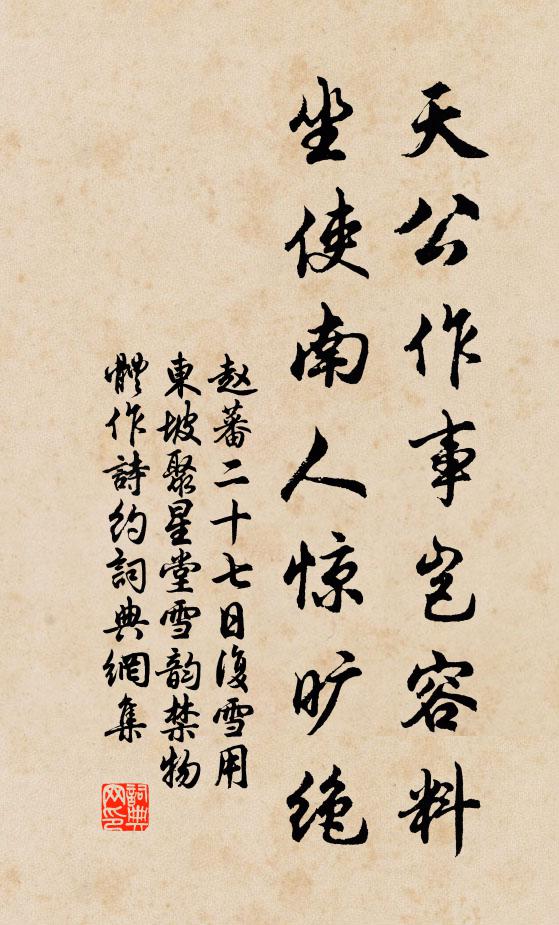 天公作事岂容料
坐使南人惊旷绝
赵蕃二十七日復雪用
東坡聚星堂雪韵禁物
體作詩约詞典網集
詞典网印